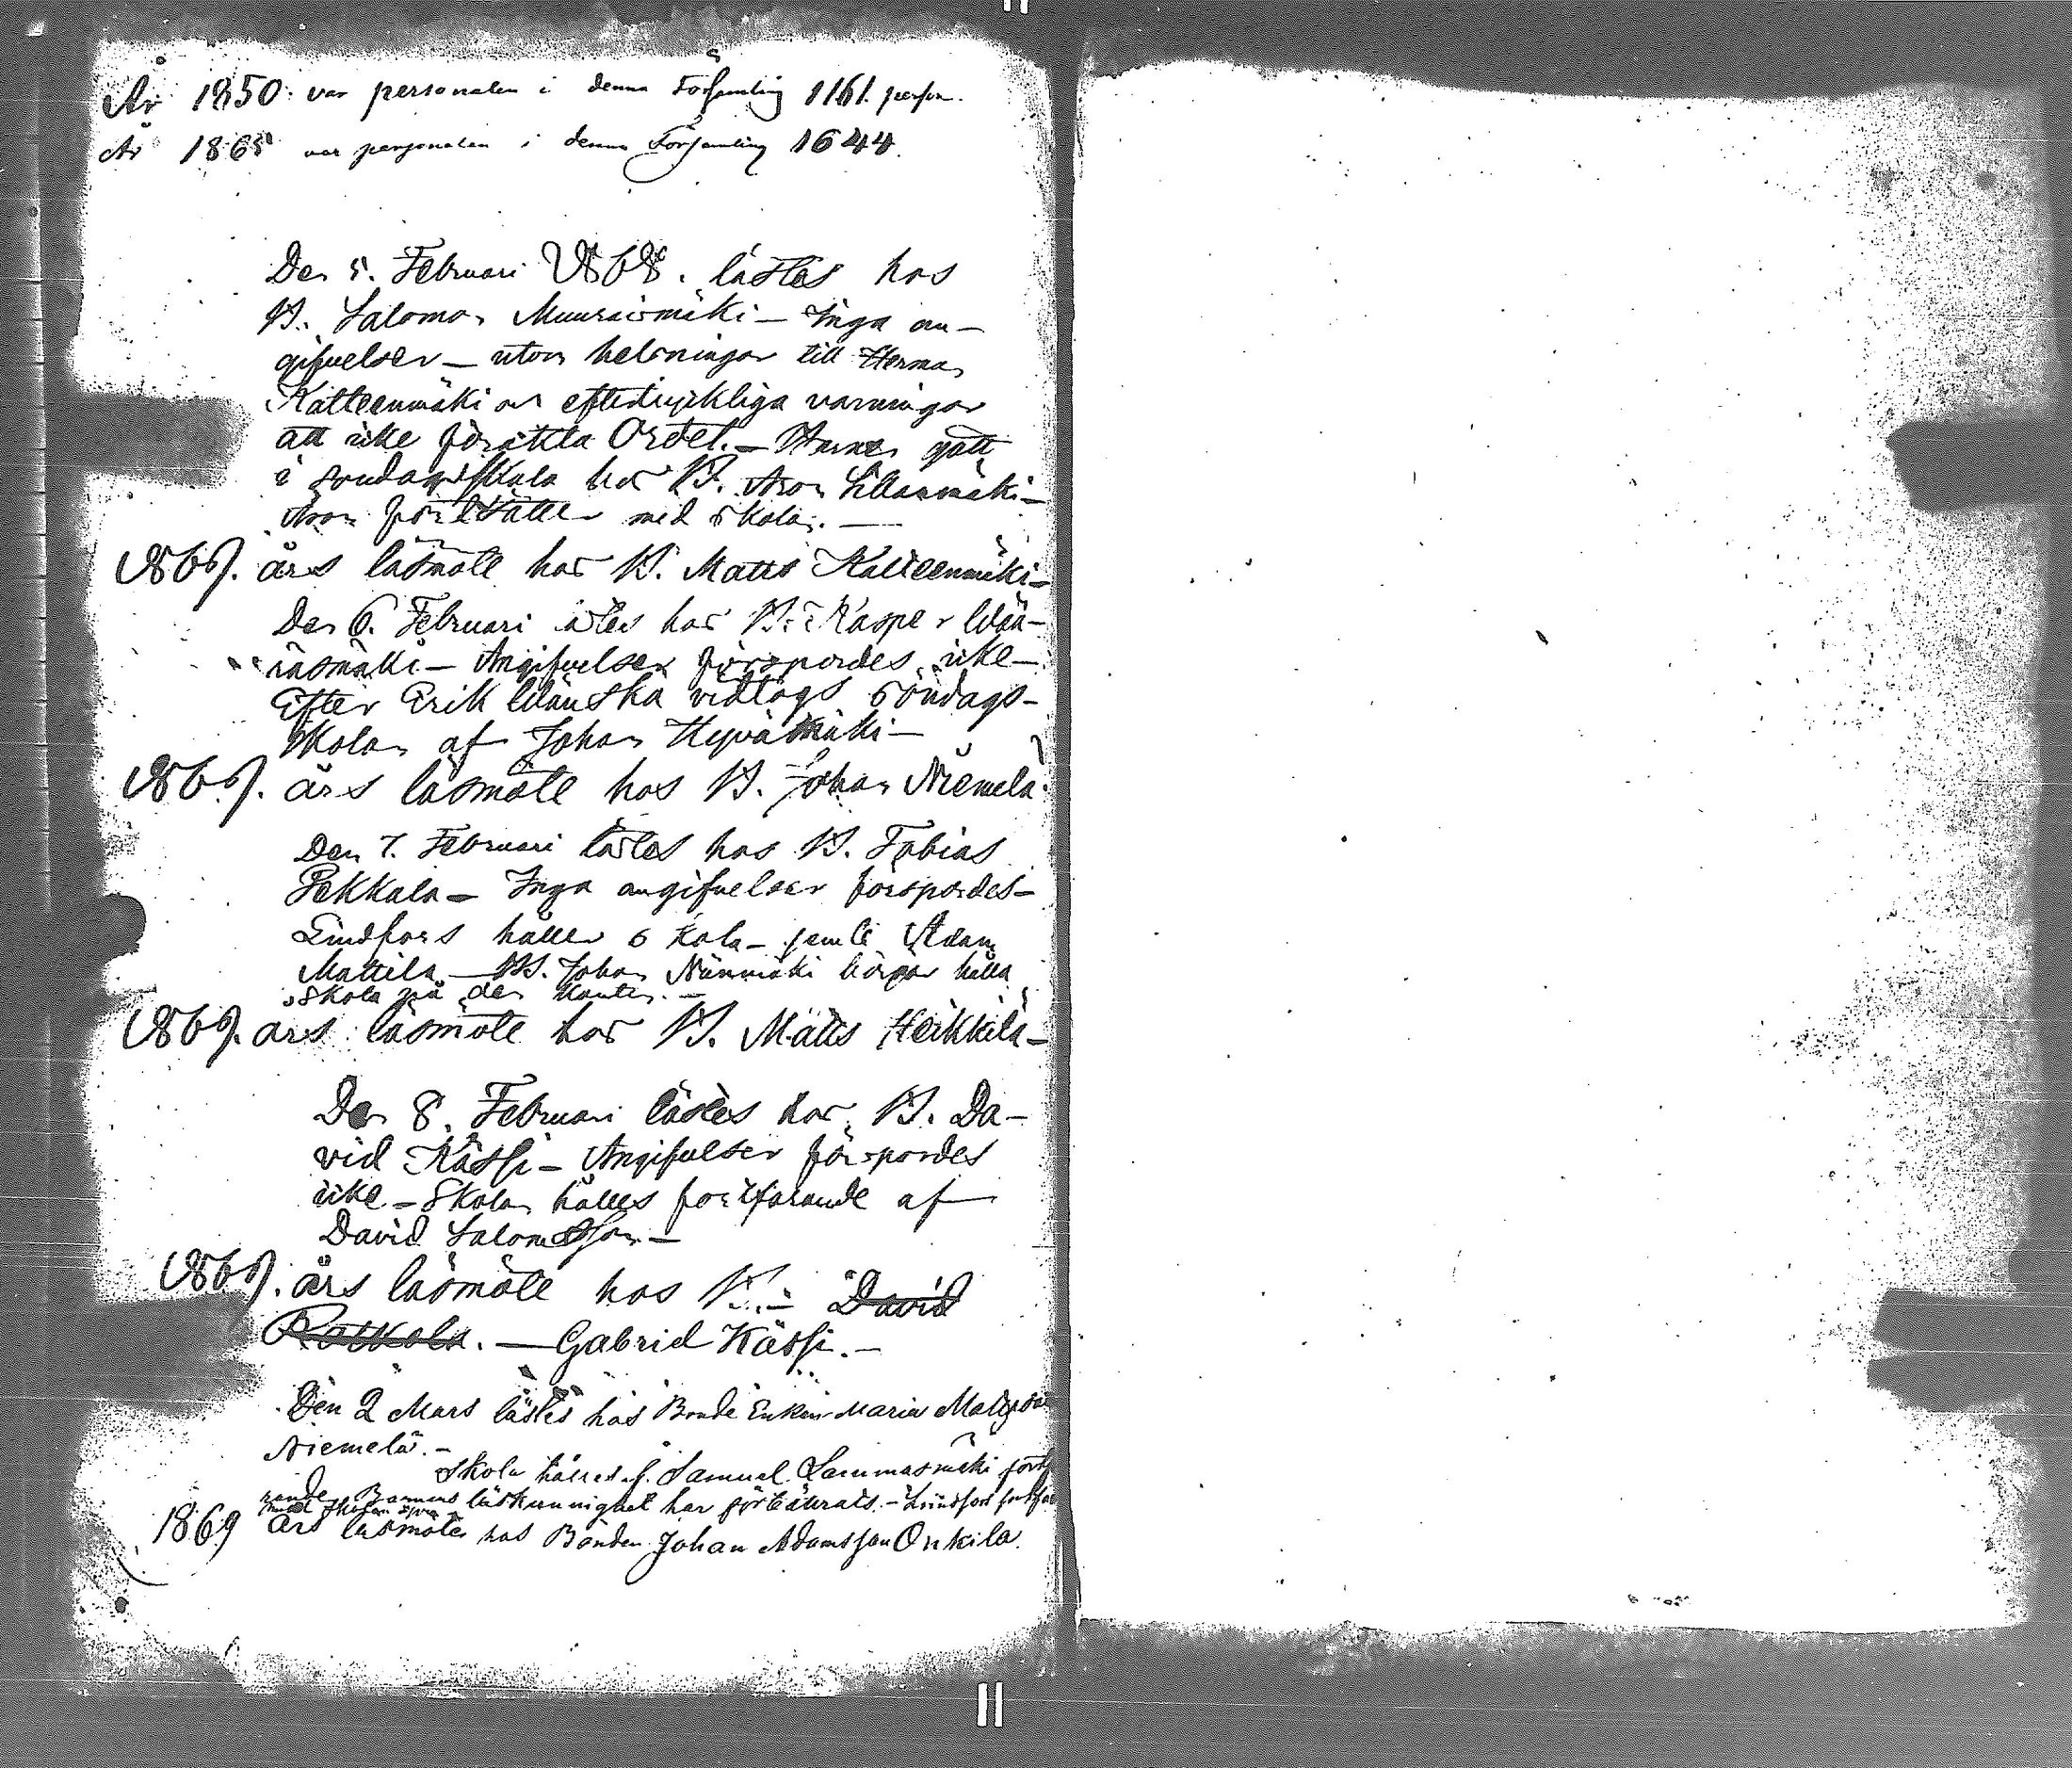 År 1850 var personalen i denna Församling 1161 person.
År 1865 var personalen i denna Församling 1644.
Den 5. Februari 1868. lästes hos
B. Salomon Muuraismäki – Inga an-
gifvelser – utom helsningar till Herman
Katteenmäki om eftertryckliga varningar
att icke förakta Ordet. – Barnen gått
i söndagsskola hos B. Aron
Aron fortsätter med skolan. –
1869. års läsmöte hos B. Matts Katteenmäki –
Den 6. Februari lästes hos B. Kasper
– Angifvelser förspordes icke –
Efter Erik vidtogs söndags-
skolan af Johan Hyvämäki –
1869. års läsmöte hos B. Johan Niemelä.
Den 7. Februari lästes hos B. Tobias
Pekkala – Inga angifvelser förspordes –
Lindfors håller skola – jemte Adam
Mattila. – B. Johan Niinimäki börjar hålla
skola på den kanten. –
1869. års läsmöte hos B. Matts Heikkilä –
Den 8. Februari lästes hos B. Da-
vid Kässi – Angifvelser förspordes
icke – Skolan hålles fortfarande af
David Salomonsson –
1869. års läsmöte hos B. David
Ratkola. – Gabriel Kässi. –
Den 2 Mars lästes hos Bonde Enkan Maria Matsdotter
Niemelä. –
Skola hålles af Samuel Lammasmäki fortfa
rande Barnens läskunnighet har förbättrats. – Lindfors fortfar
med skolan
1869 års läsmöte hos Bonden Johan Adamsson Onkila.